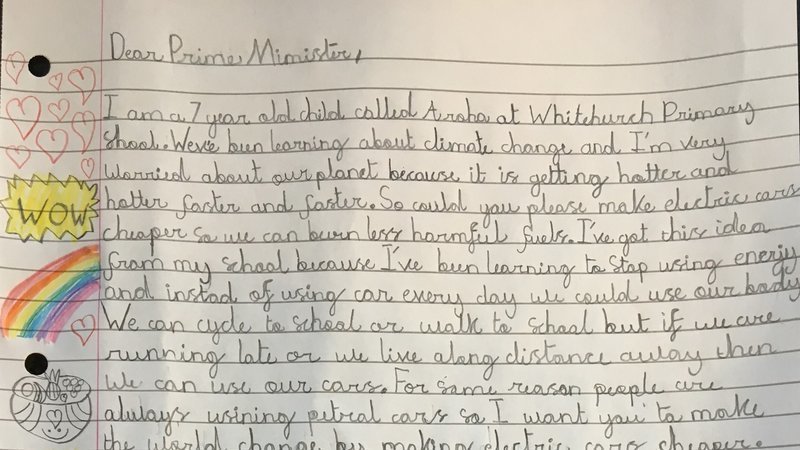 Dear Prime Mimister,
I am a 7 year old child called Aroha at Whitchurch Primary
Shool. Weve bun learning about climate change and I'm very
worried about our planet because it is getting hotter and
hotter faster and faster. So could you please make electric cars
cheaper so we can burn less harmful fuels. I've got this idea
WOW
from my school because I've bun learning to stop using energy
and instad of using car every day we could use our body
We can cycle to school or walk to school but if we are
running late or we live along distance away then
we can use our cars. For some reason people are
always usining petral cars so I want you to make
the world change by making electric cars cheaper.